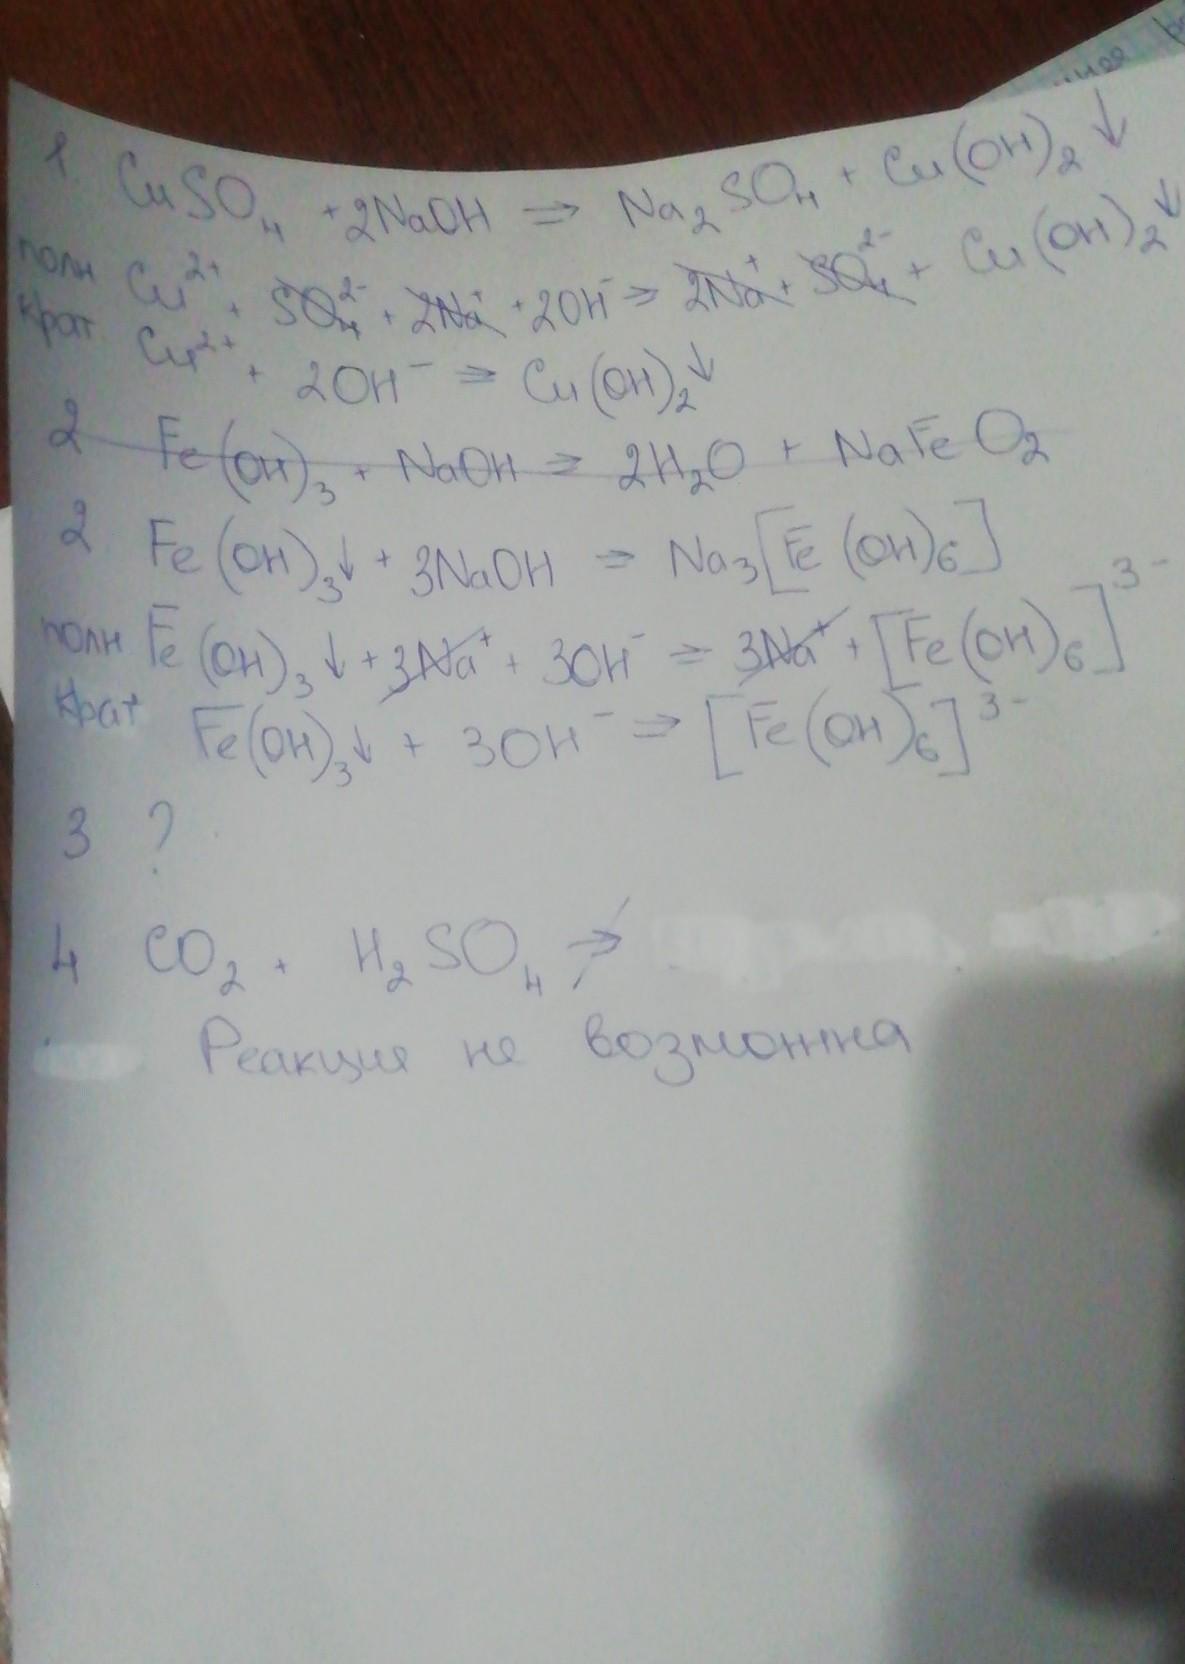 1. CuSO₄ + 2NaOH ⇒ Na₂SO₄ + Cu(OH)₂↓
полн Cu²⁺ + SO₄²⁻ + 2Na⁺ + 2OH⁻ ⇒ 2Na⁺ + SO₄²⁻ + Cu(OH)₂↓
крат Cu²⁺ + 2OH⁻ ⇒ Cu(OH)₂↓
2 Fe(OH)₃ + NaOH ⇒ 2H₂O + NaFeO₂
2 Fe(OH)₃↓ + 3NaOH ⇒ Na₃[Fe(OH)₆]
полн Fe(OH)₃↓ + 3Na⁺ + 3OH⁻ ⇒ 3Na⁺ + [Fe(OH)₆]³⁻
крат Fe(OH)₃↓ + 3OH⁻ ⇒ [Fe(OH)₆]³⁻
3 ?
4 CO₂ + H₂SO₄ ⇏
Реакция не возможна